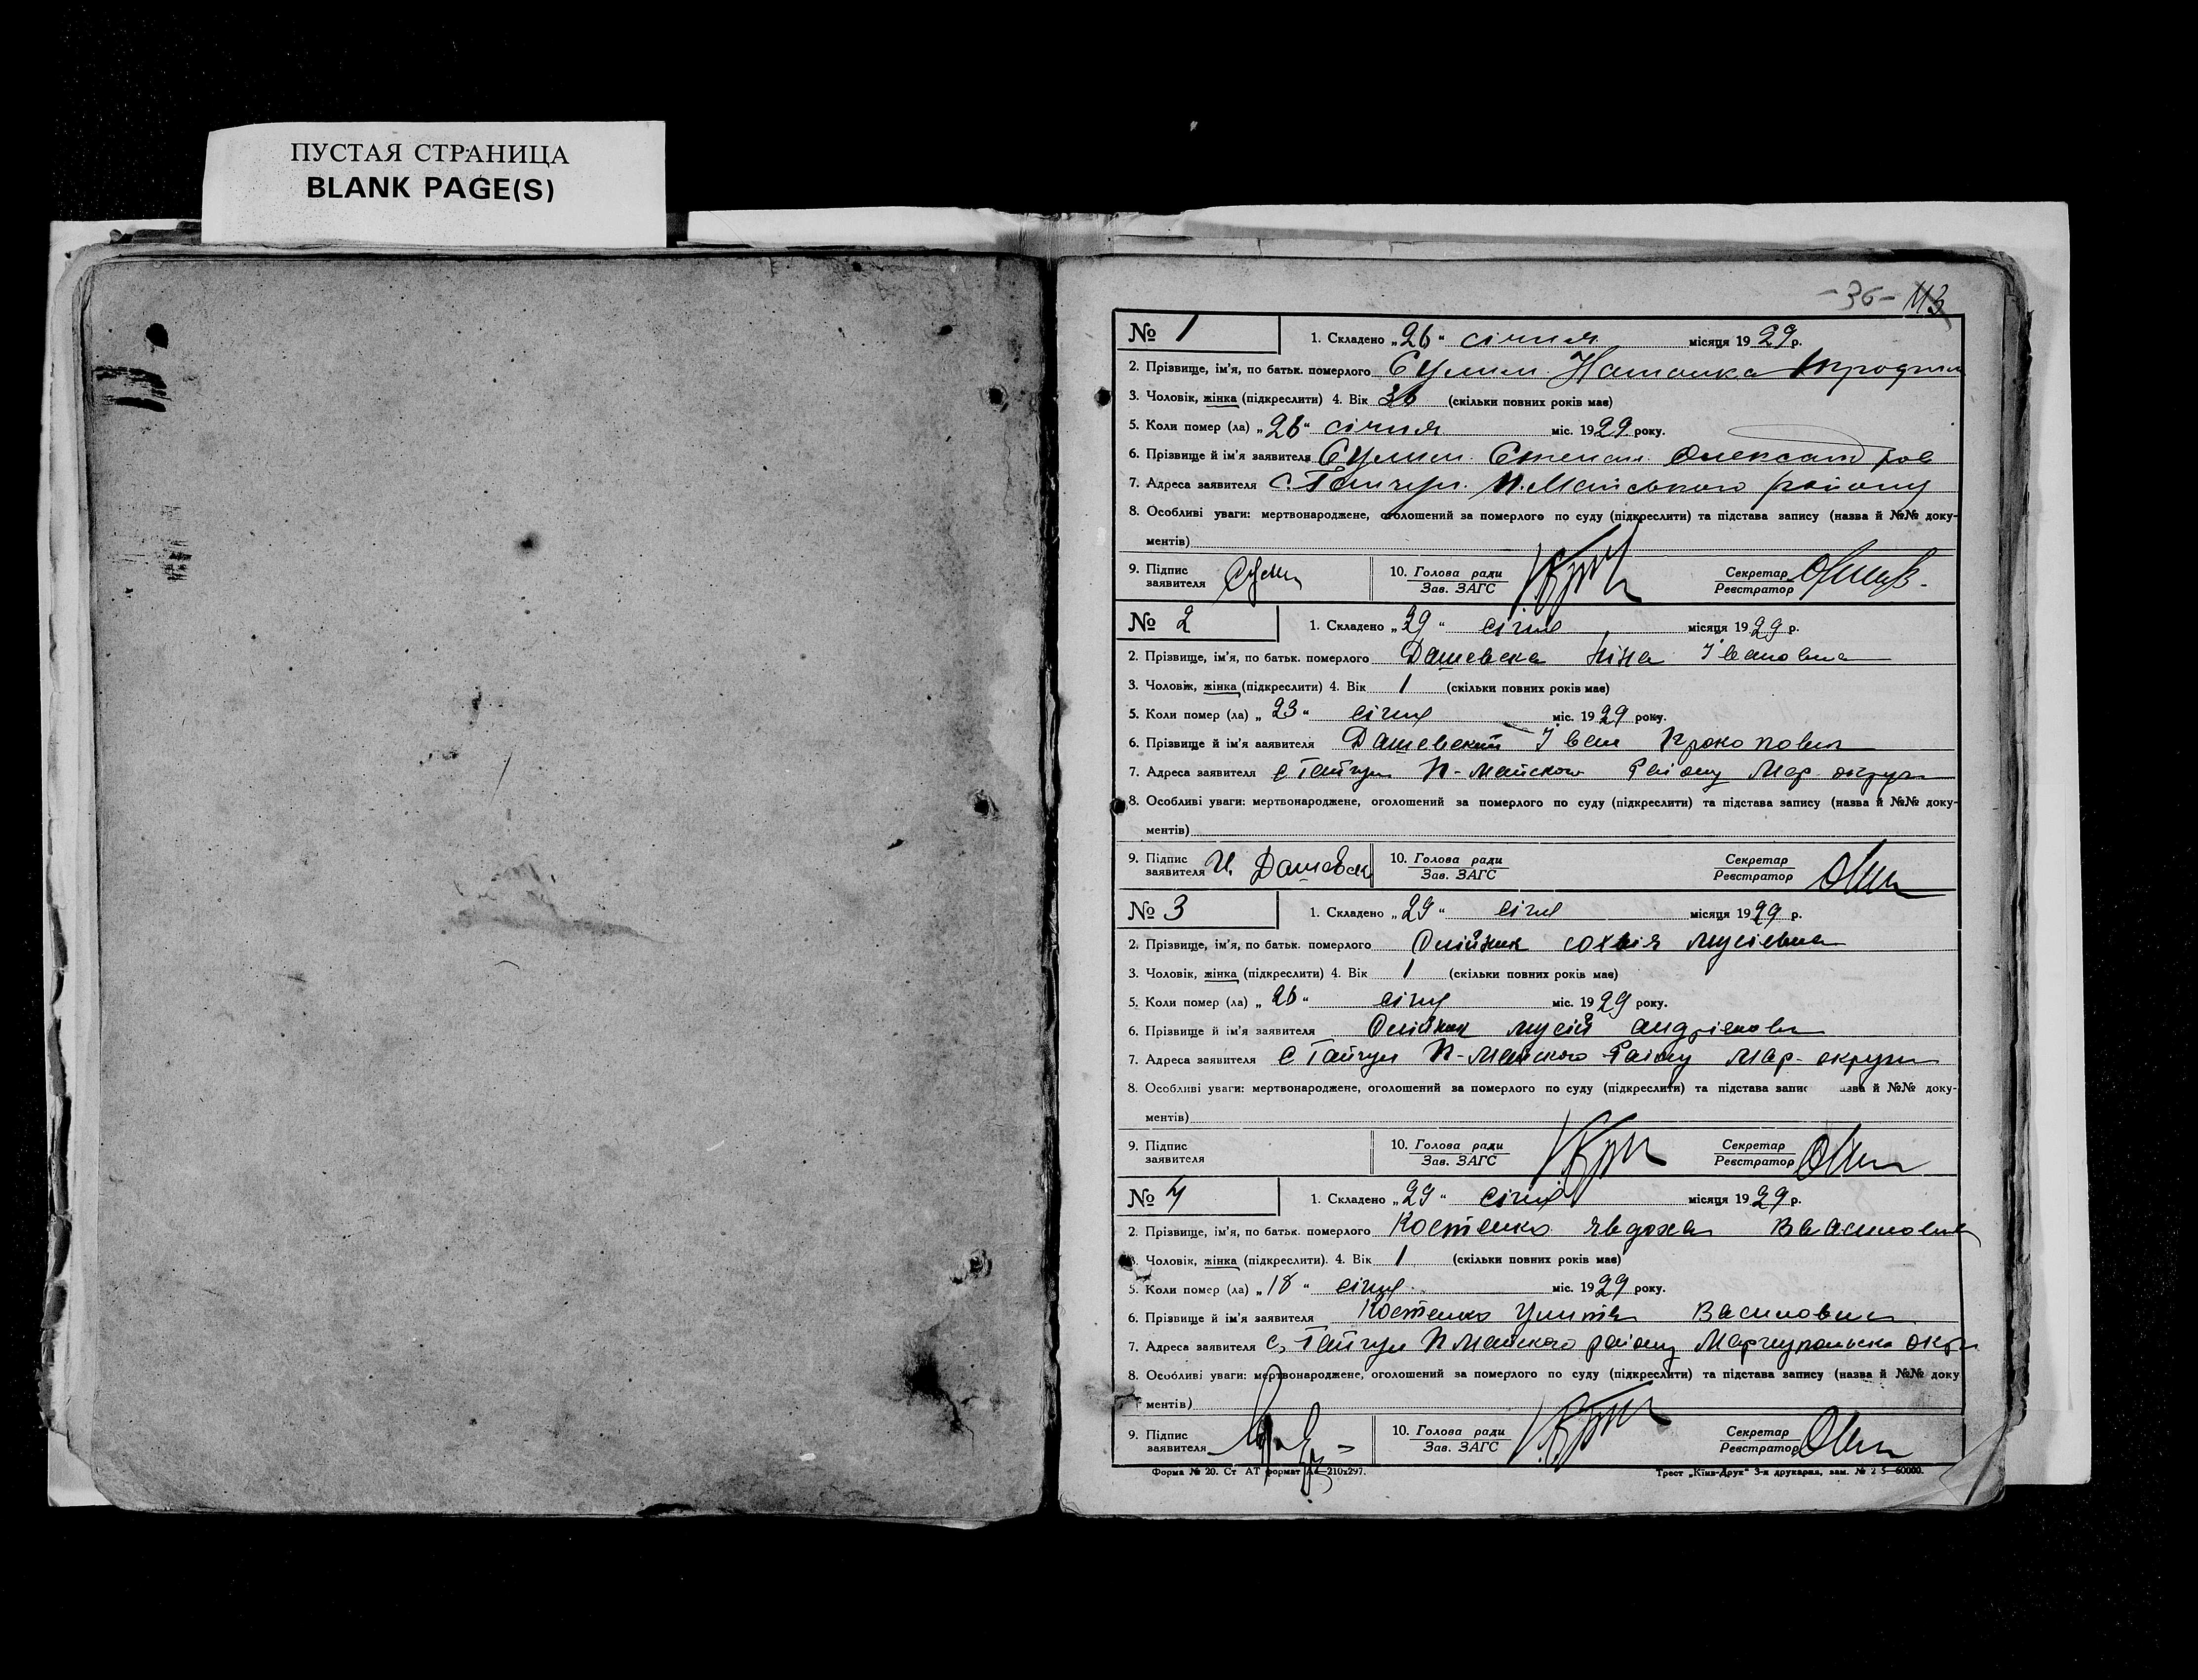 ПУСТАЯ СТРАНИЦА
BLANK PAGE(S)
-36- 113
№ 1 1. Складено „26“ січня місяця 1929 р.
2. Прізвище, ім'я, по батьк. померлого Сулим Наталка
3. Чоловік, жінка (підкреслити) 4. Вік 36 (скільки повних років має)
5. Коли помер (ла) „26“ січня міс. 1929 року.
6. Прізвище й ім'я заявителя Сулим Степан Олександров
7. Адреса заявителя с. Гайчул П. Майського району
8. Особливі уваги: мертвонароджене, оголошений за померлого по суду (підкреслити) та підстава запису (назва й №№ доку-
ментів)
9. Підпис заявителя Сулим 10. Голова ради Зав. ЗАГС Секретар Реєстратор
№ 2 1. Складено „29“ січня місяця 1929 р.
2. Прізвище, ім'я, по батьк. померлого Дашевска Ніна Івановна
3. Чоловік, жінка (підкреслити) 4. Вік 1 (скільки повних років має)
5. Коли помер (ла) „23“ січня міс. 1929 року.
6. Прізвище й ім'я заявителя Дашевский Іван Прокопович
7. Адреса заявителя с Гайчул П-Майского Району Мар. округи
8. Особливі уваги: мертвонароджене, оголошений за померлого по суду (підкреслити) та підстава запису (назва й №№ доку-
ментів)
9. Підпис заявителя И. Дашевск 10. Голова ради Зав. ЗАГС Секретар Реєстратор
№ 3 1. Складено „29“ січня місяця 1929 р.
2. Прізвище, ім'я, по батьк. померлого Олійник Мусіевна
3. Чоловік, жінка (підкреслити) 4. Вік 1 (скільки повних років має)
5. Коли помер (ла) „26“ січня міс. 1929 року.
6. Прізвище й ім'я заявителя Олійник Мусій
7. Адреса заявителя с Гайчул П-Майского Району Мар. округи
8. Особливі уваги: мертвонароджене, оголошений за померлого по суду (підкреслити) та підстава запис азва й №№ доку-
ментів)
9. Підпис заявителя 10. Голова ради Зав. ЗАГС Секретар Реєстратор
№ 4 1. Складено „29“ січня місяця 1929 р.
2. Прізвище, ім'я, по батьк. померлого Костенко Явдоха Василовна
3. Чоловік, жінка (підкреслити). 4. Вік 1 (скільки повних років має)
5. Коли помер (ла) „18“ січня міс. 1929 року.
6. Прізвище й ім'я заявителя Костенко Улита Василовна
7. Адреса заявителя с. Гайчул П Майского району Маріупольска окр
8. Особливі уваги: мертвонароджене, оголошений за померлого по суду (підкреслити) та підстава запису (назва й №№ доку
ментів)
9. Підпис заявителя 10. Голова ради Зав. ЗАГС Секретар Реєстратор
Форма № 20. Ст АТ формат А4—210x297. Трест „Київ-Друк“ 3-я друкарня, зам. № 2 5—60000.